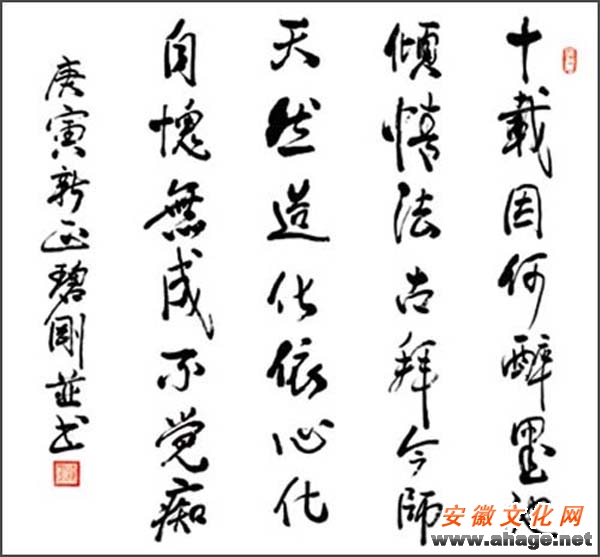 十載因何醉墨池
傾情法古拜今師
天然造化依心化
自愧無成不觉痴
庚寅新正碧剛並书
安徽文化网
www.ahage.net